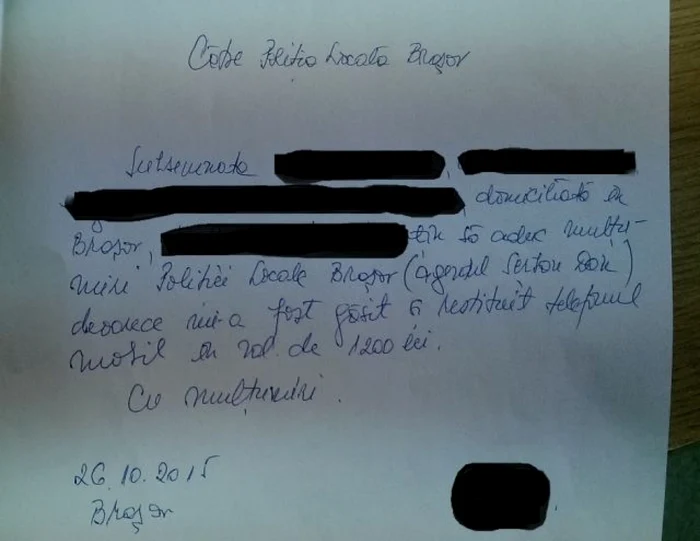 Către Poliția Locală Brașov
Subsemnata
domiciliată în
Brașov, țin să aduc mulțu-
miri Poliției Locale Brașov (agentul Dan)
deoarece mi-a fost găsit și restituit telefonul
mobil în val. de 1200 lei.
Cu mulțumiri.
26.10.2015
Brașov